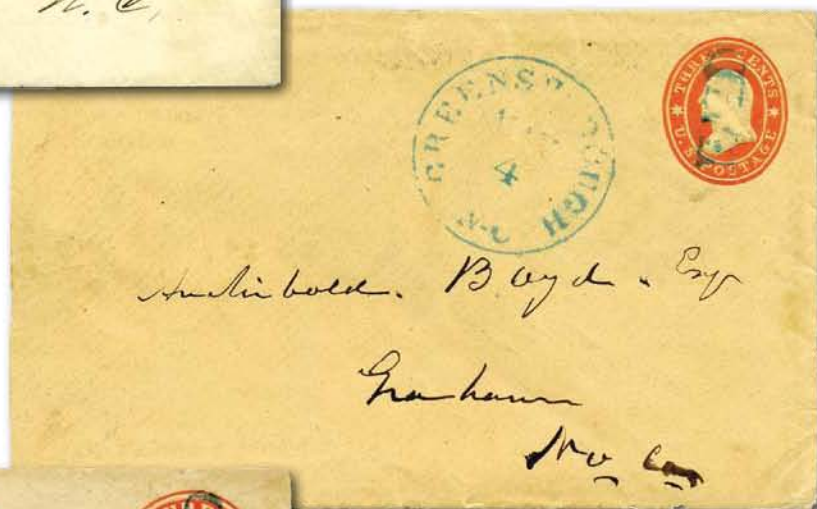 N. C,
GREENSBOROUGH
4
N.C
THREE CENTS
U.S. POSTAGE
PAID
Archibold. Boyd. Esq
Graham
No Ca